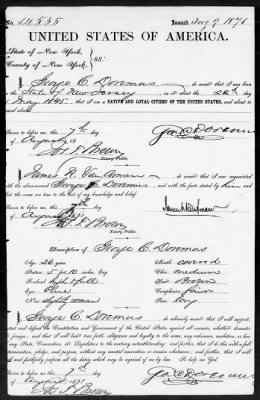 No. 14535 Issued Aug 9 1871
UNITED STATES OF AMERICA.
State of New York,
County of New York, } ss:
I, George C. Doremus, do swear that I was born
in the State of New Jersey on or about the 22d day
of May 1845, that I am a NATIVE AND LOYAL CITIZEN OF THE UNITED STATES, and
Sworn to before me, this 7th day
of August 1871
Geo C Doremus
Jas. T. Brown
Notary Public
I, James R. Van, do swear that I am acquainted
with the abovenamed George C. Doremus, and with the facts stated by him and
that the same are true to the best of my knowledge and belief.
Sworn to before me, this 7th day
of August 1871
Jas. T. Brown
Notary Public
Description of George C. Doremus
Age: 26 years Mouth
Stature: 5 feet 10 inches, Eng. Chin: medium
Forehead: high & full Hair: Brown
Eyes: Complexion: fair
Nose: slightly roman Face:
I, George C. Doremus, do solemnly swear that I will support
and defend the Constitution and Government of the United States against all enemies, whether domestic
or foreign; and that I will bear true faith, allegiance and loyalty to the same, any ordinance, resolution or law
of any State, Convention or Legislature to the contrary notwithstanding; and further, that I do this with a full
determination, pledge, and purpose, without any mental reservation or evasion whatsoever; and further, that I will
well and faithfully perform all the duties which may be required of me by law. So help me God!
Sworn to before me, this 7th day
of August 1871
Geo C Doremus
Jas. T. Brown